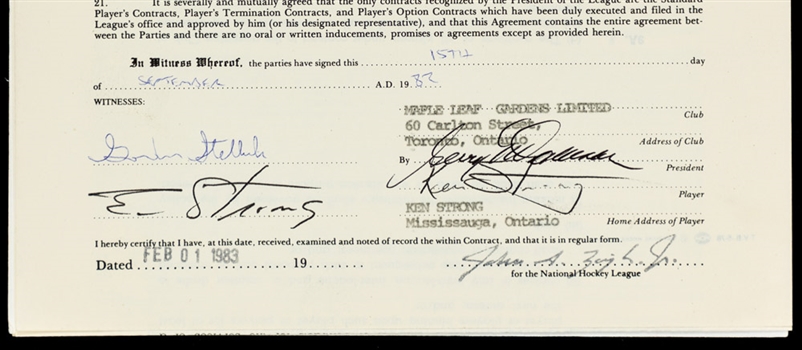 21. It is severally and mutually agreed that the only contracts recognized by the President of the League are the Standard
Player's Contracts, Player's Termination Contracts, and Player's Option Contracts which have been duly executed and filed in the
League's office and approved by him (or his designated representative), and that this Agreement contains the entire agreement bet-
ween the Parties and there are no oral or written inducements, promises or agreements except as provided herein.
In Witness Whereof, the parties have signed this 15TH day
of SEPTEMBER A.D. 19 82
WITNESSES:
MAPLE LEAF GARDENS LIMITED Club
60 Carlton Street,
Toronto, Ontario Address of Club
Gordon Stellick
By President
E Strong
Ken Strong Player
KEN STRONG
Mississauga, Ontario Home Address of Player
I hereby certify that I have, at this date, received, examined and noted of record the within Contract, and that it is in regular form.
Dated FEB 01 1983 19
John A. Ziegler Jr.
for the National Hockey League